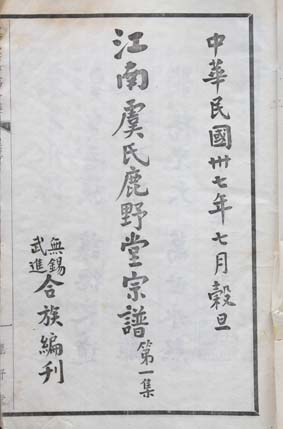 中華民國卅七年七月穀旦
江南虞氏鹿野堂宗譜第一集
無錫
武進
合族編刊